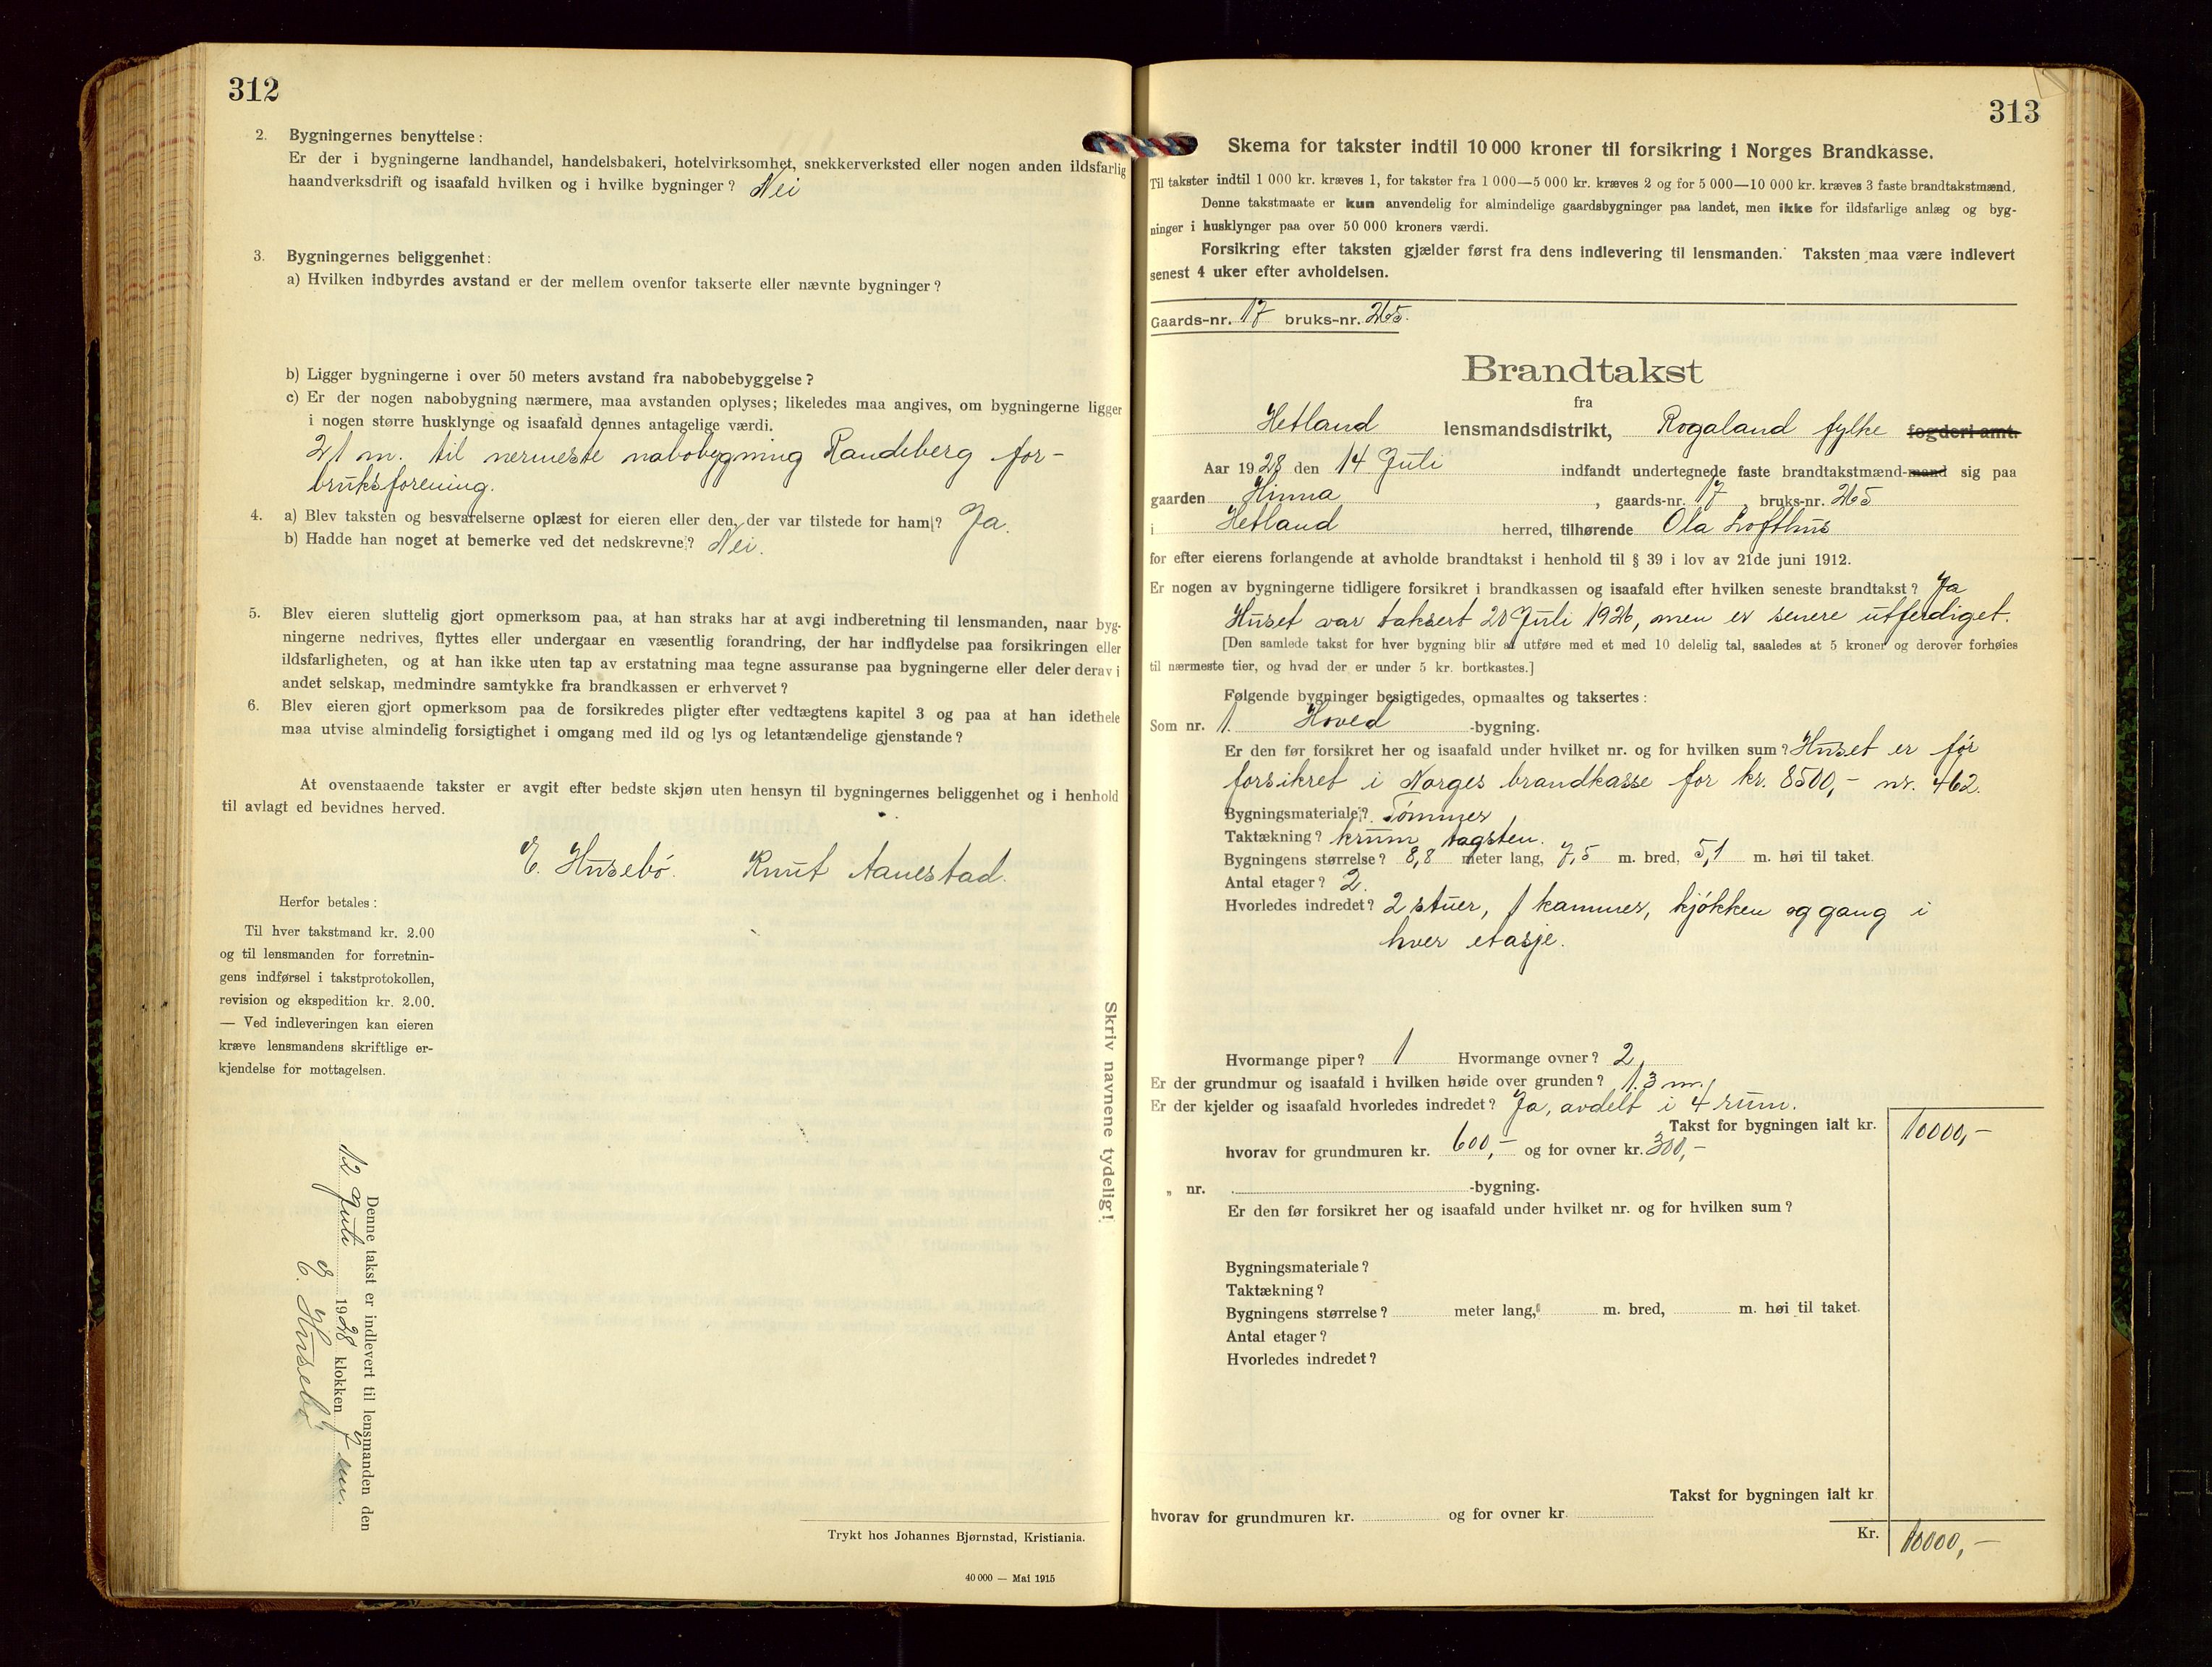 312
2. Bygningernes benyttelse:
Er der i bygningerne landhandel, handelsbakeri, hotelvirksomhet, snekkerverksted eller nogen anden ildsfarlig
haandverksdrift og isaafald hvilken og i hvilke bygninger? Nei
3. Bygningernes beliggenhet:
a) Hvilken indbyrdes avstand er der mellem ovenfor takserte eller nævnte bygninger?
b) Ligger bygningerne i over 50 meters avstand fra nabobebyggelse?
c) Er der nogen nabobygning nærmere, maa avstanden oplyses; likeledes maa angives, om bygningerne ligger
i nogen større husklynge og isaafald dennes antagelige værdi.
21 m. til nermeste nabobygning Randeberg for-
bruksforening.
4. a) Blev taksten og besvarelserne oplæst for eieren eller den, der var tilstede for ham? Ja.
b) Hadde han noget at bemerke ved det nedskrevne? Nei.
5. Blev eieren sluttelig gjort opmerksom paa, at han straks har at avgi indberetning til lensmanden, naar byg-
ningerne nedrives, flyttes eller undergaar en væsentlig forandring, der har indflydelse paa forsikringen eller
ildsfarligheten, og at han ikke uten tap av erstatning maa tegne assuranse paa bygningerne eller deler derav i
andet selskap, medmindre samtykke fra brandkassen er erhvervet?
6. Blev eieren gjort opmerksom paa de forsikredes pligter efter vedtægtens kapitel 3 og paa at han idethele
maa utvise almindelig forsigtighet i omgang med ild og lys og letantændelige gjenstande?
At ovenstaaende takster er avgit efter bedste skjøn uten hensyn til bygningernes beliggenhet og i henhold
til avlagt ed bevidnes herved.
E. Husebö. Knut Aanestad.
Herfor betales:
Til hver takstmand kr. 2.00
og til lensmanden for forretnin-
gens indførsel i takstprotokollen,
revision og ekspedition kr. 2.00.
— Ved indleveringen kan eieren
kræve lensmandens skriftlige er-
kjendelse for mottagelsen.
Denne takst er indlevert til lensmanden den
12 Juli 1928 klokken 7 em.
E. Husebö
Skriv navnene tydelig!
Trykt hos Johannes Bjørnstad, Kristiania.
40 000 — Mai 1915
313
Skema for takster indtil 10 000 kroner til forsikring i Norges Brandkasse.
Til takster indtil 1 000 kr. kræves 1, for takster fra 1 000—5 000 kr. kræves 2 og for 5 000—10 000 kr. kræves 3 faste brandtakstmænd.
Denne takstmaate er kun anvendelig for almindelige gaardsbygninger paa landet, men ikke for ildsfarlige anlæg og byg-
ninger i husklynger paa over 50 000 kroners værdi.
Forsikring efter taksten gjælder først fra dens indlevering til lensmanden. Taksten maa være indlevert
senest 4 uker efter avholdelsen.
Gaards-nr. 17 bruks-nr. 265.
Brandtakst
fra
Hetland lensmandsdistrikt, Rogaland fylke fogderi amt.
Aar 1928 den 14 Juli indfandt undertegnede faste brandtakstmænd-mand sig paa
gaarden Hinna, gaards-nr. 17, bruks-nr. 265
i Hetland herred, tilhørende Ola Lofthus
for efter eierens forlangende at avholde brandtakst i henhold til § 39 i lov av 21de juni 1912.
Er nogen av bygningerne tidligere forsikret i brandkassen og isaafald efter hvilken seneste brandtakst? Ja
Huset var taksert 20 Juli 1926, men er senere utferdiget.
[Den samlede takst for hver bygning blir at utføre med et med 10 delelig tal, saaledes at 5 kroner og derover forhøies
til nærmeste tier, og hvad der er under 5 kr. bortkastes.]
Følgende bygninger besigtigedes, opmaaltes og taksertes:
Som nr. 1. Hoved -bygning.
Er den før forsikret her og isaafald under hvilket nr. og for hvilken sum? Huset er før
forsikret i Norges brandkasse for kr. 8500,- nr. 462.
Bygningsmateriale? Tömmer
Taktækning? Krum tagsten.
Bygningens størrelse? 8,8 meter lang, 7,5 m. bred, 5,1 m. høi til taket.
Antal etager? 2.
Hvorledes indredet? 2 stuer, 1 kammer, kjökken og gang i
hver etasje.
Hvormange piper? 1 Hvormange ovner? 2
Er der grundmur og isaafald i hvilken høide over grunden? 1.3 m.
Er der kjelder og isaafald hvorledes indredet? Ja, avdelt i 4 rum.
Takst for bygningen ialt kr. 10000,-
hvorav for grundmuren kr. 600,- og for ovner kr. 300,-
„ nr. -bygning.
Er den før forsikret her og isaafald under hvilket nr. og for hvilken sum?
Bygningsmateriale?
Taktækning?
Bygningens størrelse? meter lang, m. bred, m. høi til taket.
Antal etager?
Hvorledes indredet?
Takst for bygningen ialt kr
hvorav for grundmuren kr. og for ovner kr.
Kr. 10000,-